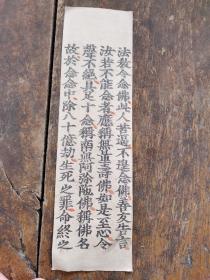 法教令念佛此人苦逼不遑念佛善友告言
汝若不能念者應稱無量壽佛如是至心令
聲不絕具足十念稱南無阿彌陀佛稱佛名
故於念念中除八十億劫生死之罪命終之